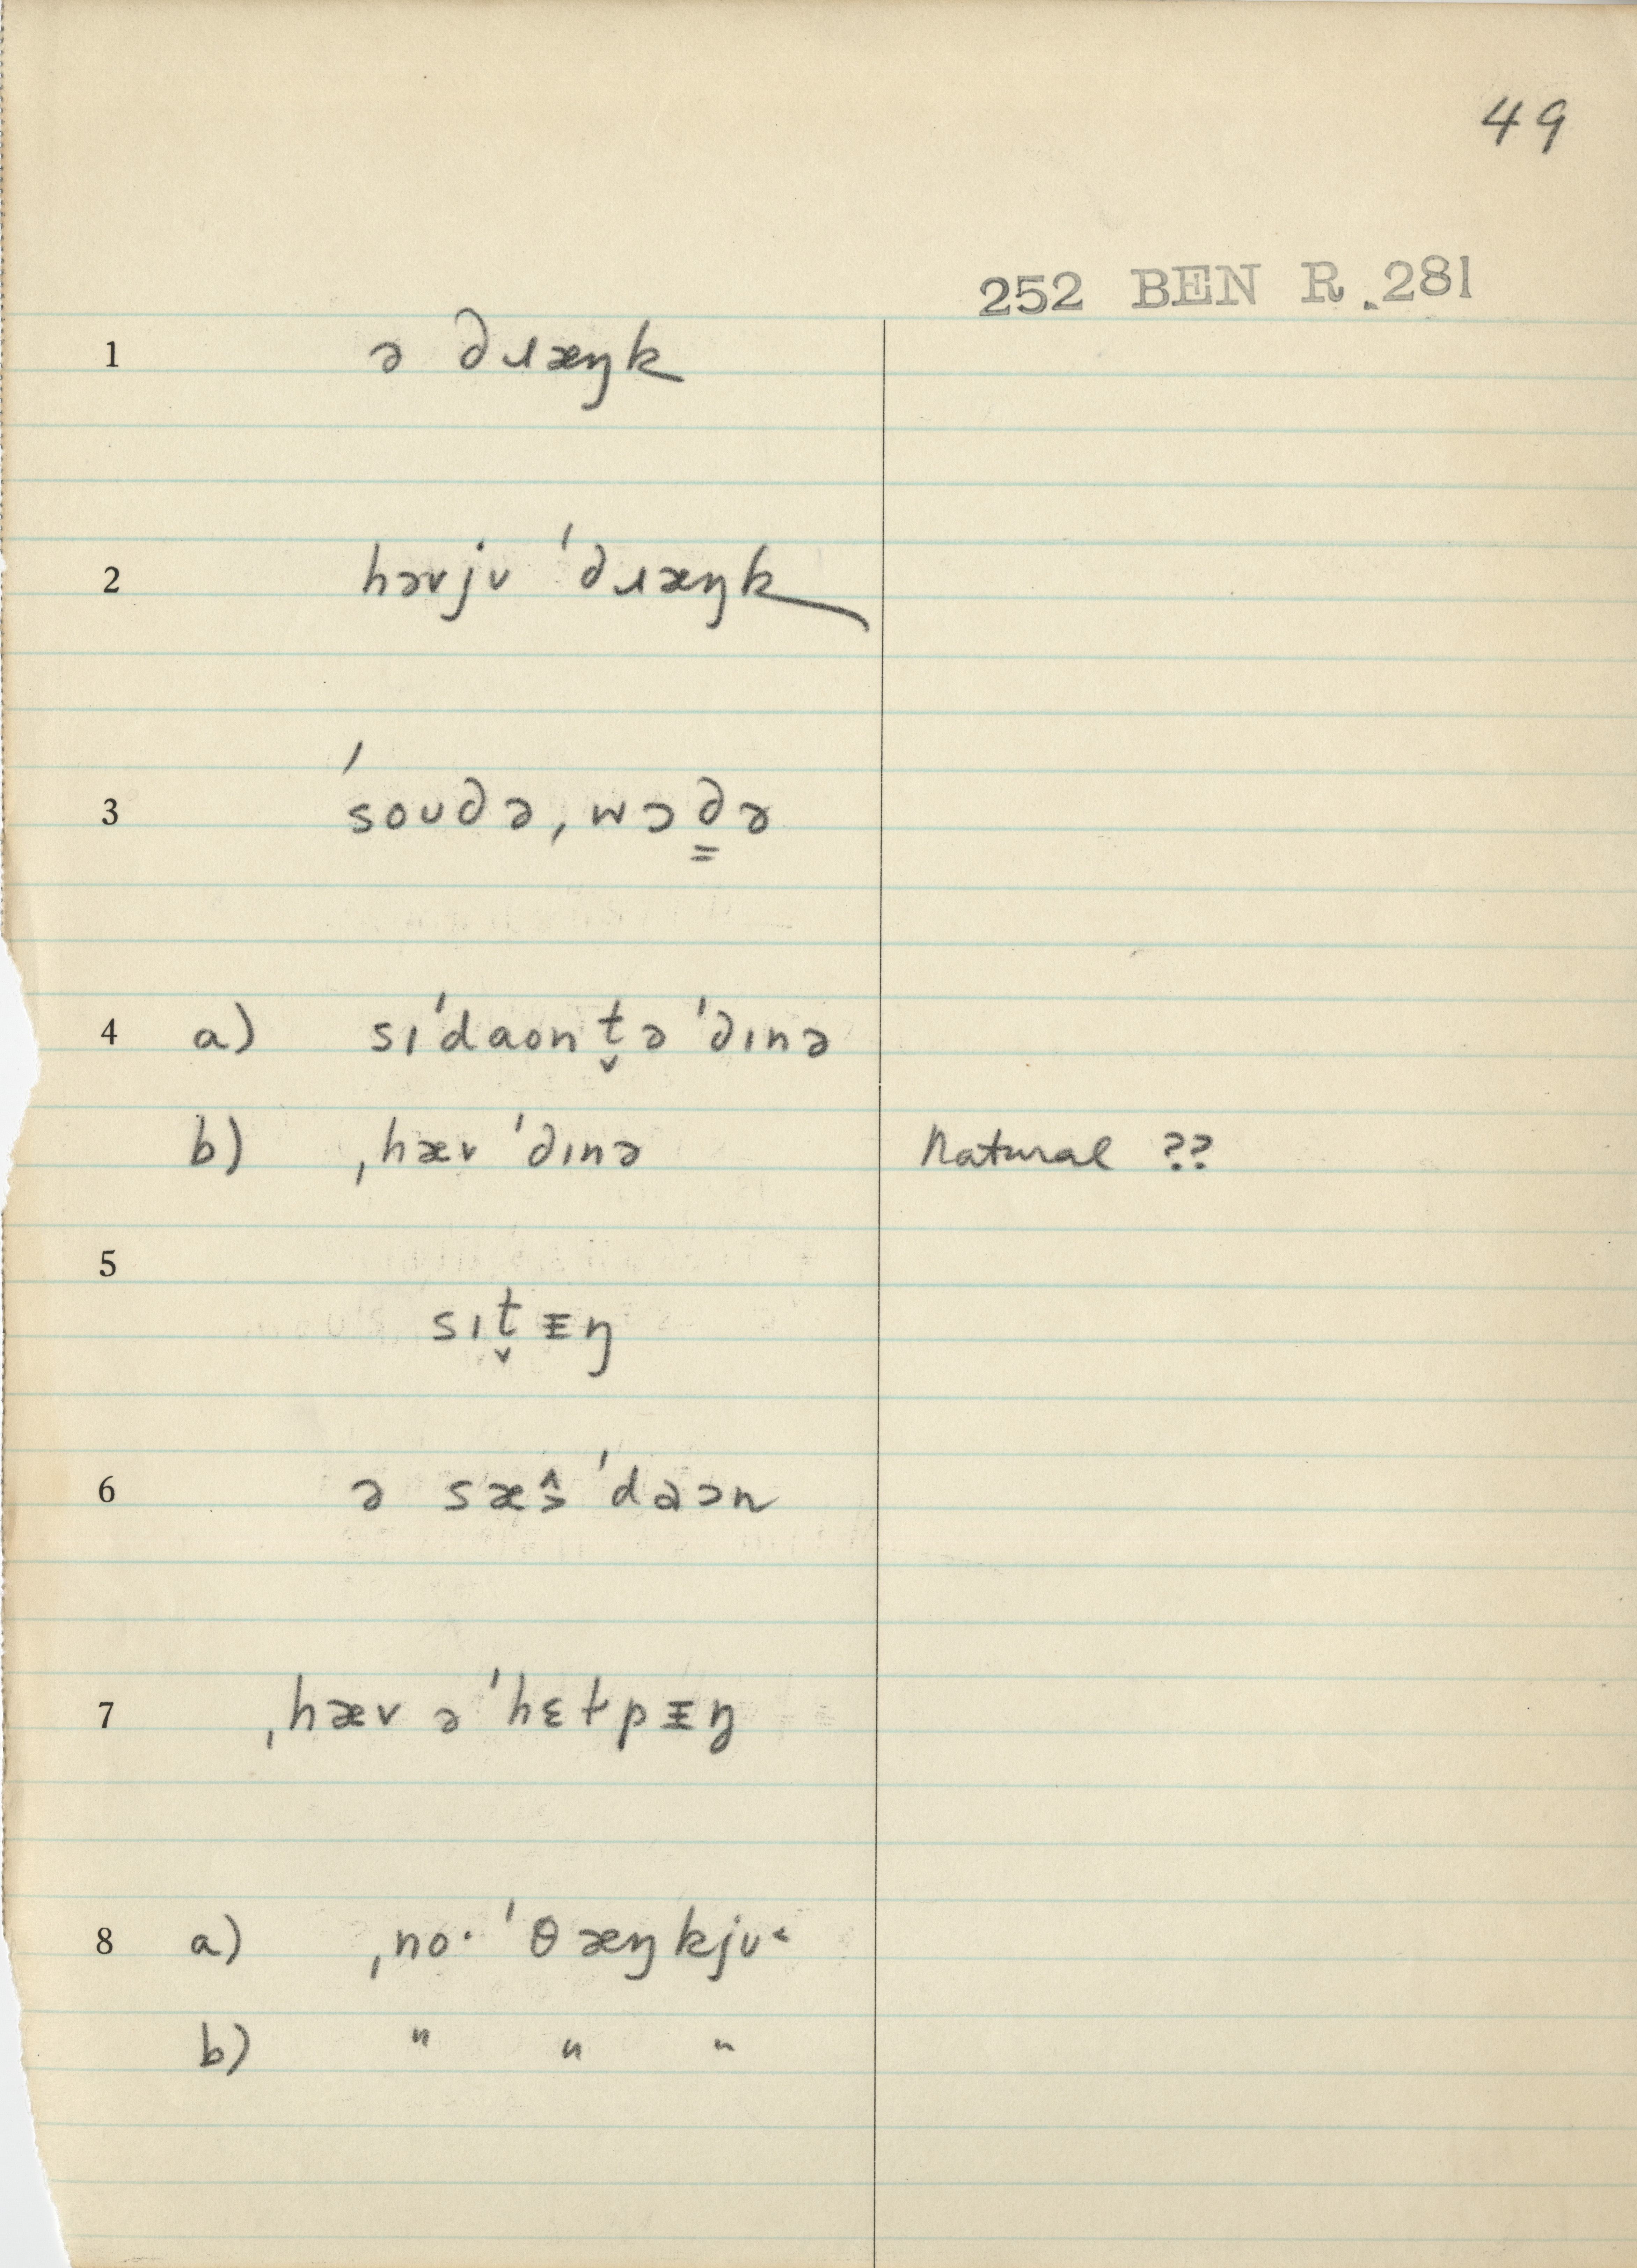 49
252 BEN R.281
1 ə ∂ɹæŋk
2 həvjʊ ˈ∂ɹæŋk
3 ˈsoʊ∂ə, wɔ∂͇ə
4 a) sɪˈdaont̬ə ˈ∂ɪnə
b) ˌhæv ˈ∂ɪnə Natural ??
5
sɪt̬ᵻŋ
6 ə sæŝ ˈdaɔn
7 ˌhæv əˈhɛɫpᵻŋ
8 a) ˌno· ˈθæŋkjʊ˂
b) " " "